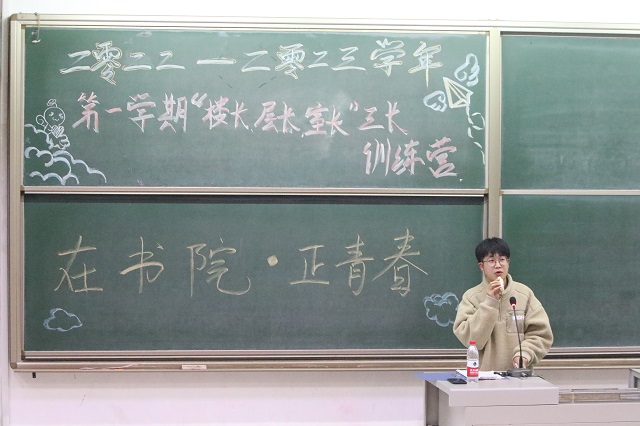 二零二二一二零二三学年
第一学期“楼长、层长、室长”三长
训练营
在书院·正青春